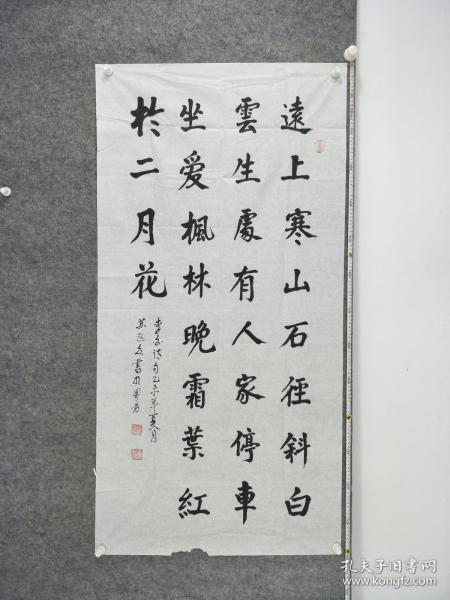 遠上寒山石徑斜白
雲生處有人家停車
坐爱楓林晚霜葉紅
於二月花
孔夫子旧书网
www.kongfz.com